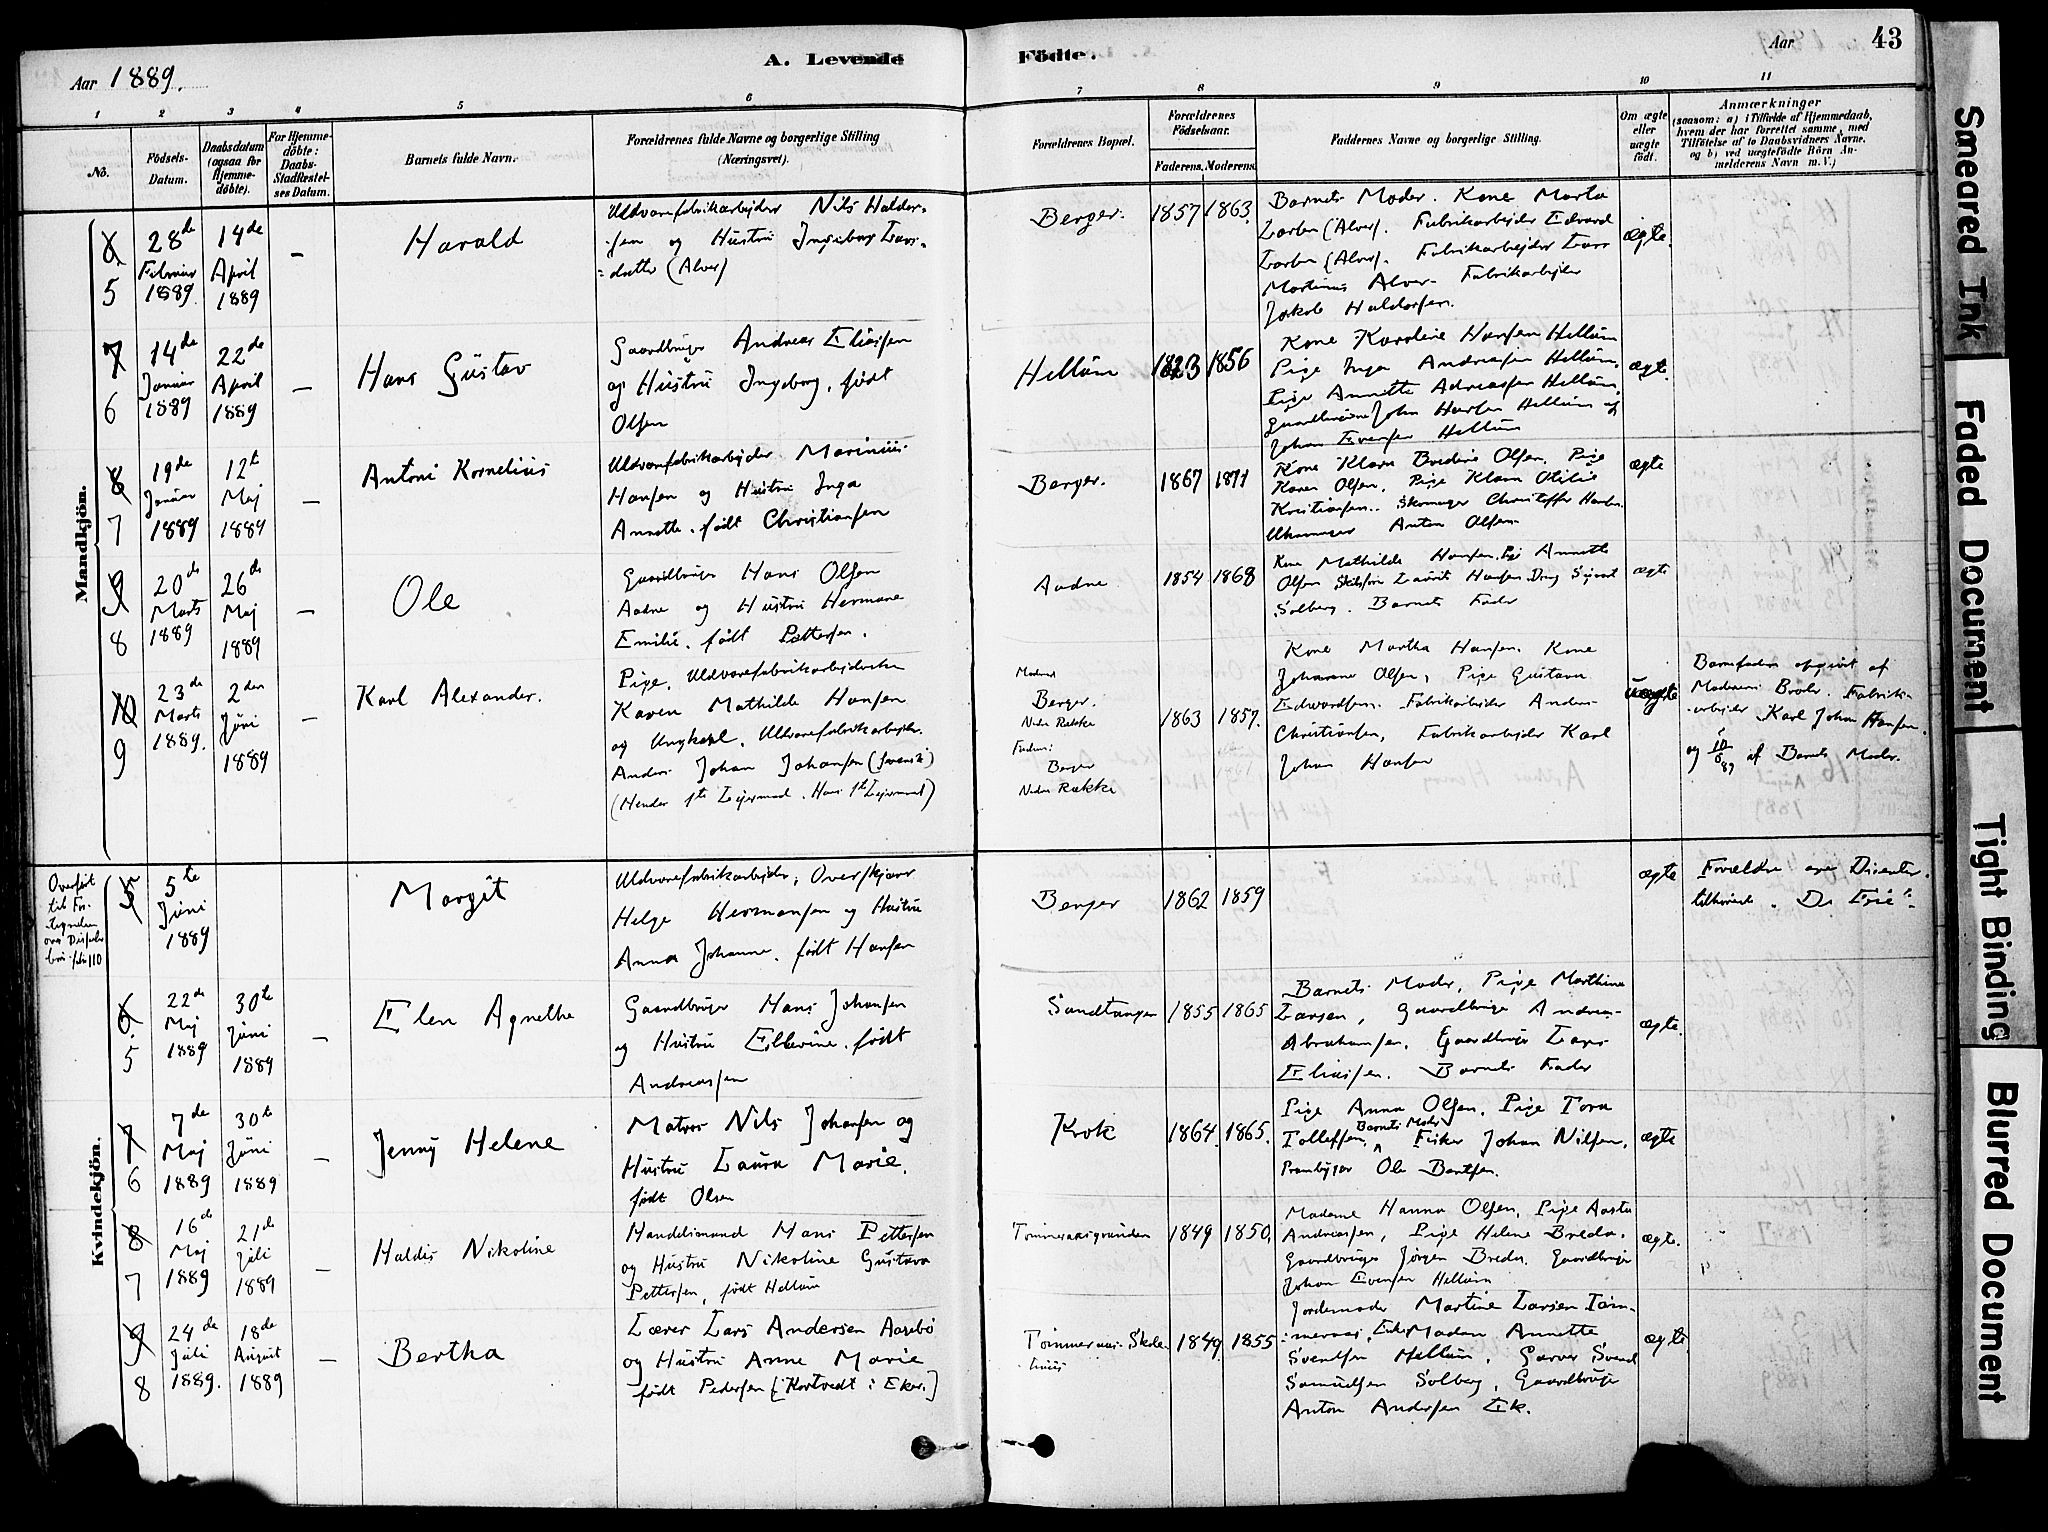 Aar 1889.
A. Levende
Födte.
Aar
43
1
2
3
4
5
6
7
8
9
10
11
No.
Födsels-
Datum.
Daabsdatum
(ogsaa for
Hjemme-
döbte).
For Hjemme-
döbte:
Daabs-
Stadfæstel-
ses Datum.
Barnets fulde Navn.
Forældrenes fulde Navne og borgerlige Stilling
(Næringsvei).
Forældrenes Bopæl.
Forældrenes
Födselsaar.
Faderens.
Moderens.
Faddernes Navne og borgerlige Stilling.
Om ægte
eller
uægte
født.
Anmærkninger
(saasom: a) i Tilfælde af Hjemmedaab,
hvem der har forrettet samme, med
Tilföielse af to Daabsvidners Navne,
og b) ved uægtefödte Börn An-
melderens Navn m. V.)
Mandkjön.
6
5
28de
Februar
1889.
14de
April
1889
Harald
Uldvarefabrikarbejder Nils Haldor-
sen og Hustru Ingeborg Lars-
datter (Alver)
Berger.
1857
1863.
Barnets Moder. Kone Marta
Larsen (Alver). Fabrikarbejder Edvard
Larsen (Alver). Fabrikarbejder Lars
Martinus Alver. Fabrikarbejder
Jakob Haldorsen.
ægte.
7
6
14de
Januar
1889
22de
April
1889
Hans Gustav
Gaardbruger Andreas Eliassen
og Hustru Ingeborg, født
Olsen
Hellum
1823
1856
Kone Karoline Hansen Hellum
Pige Inga Andreassen Hellum,
Pige Annette Adreassen Hellum
John Hansen Hellum og
Johan Evensen Hellum
ægte.
8
7
19de
Januar
1889
12te
Maj
1889
Antoni Kornelius
Uldvarefabrikarbejder Marinius
Hansen og Hustru Inga
Annette, født Christiansen
Berger.
1867
1871
Kone Klara Bredine Olsen, Pige
Karen Olsen, Pige Klara Otilie
Kristiansen. Skomager Christoffer Hansen
Anton Olsen
ægte
9
8
20de
Marts
1889
26de
Maj
1889
Ole
Gaardbruger Hans Olsen
Aadne og Hustru Hermane
Emilie, født Pettersen.
Aadne
1854
1868
Kone Mathilde Hansen, Pige Annette
Olsen Laurits Hansen, Dreng Sigvart
Solberg. Barnets Fader
ægte
10
9
23de
Marts
1889.
2den
Juni
1889
Karl Alexander.
Pige, Uldvarefabrikarbejderske
Karen Mathilde Hansen
og Ungkarl, Uldvarefabrikarbejder
Anders Johan Johansen (svensk)
(Hendes 1ste Lejermaal. Hans 1ste Lejermaal)
Moderens
Berger.
Nedre Røkke
Faderens:
Berger
Nedre Røkke
1863
1857.
Kone Martha Hansen. Kone
Johanne Olsen, Pige Gustava
Edwardsen. Fabrikarbejder Anders
Christiansen, Fabrikarbejder Karl
Johan Hansen
uægte
Barnefader opgivet af
Moderens Broder, Fabrik-
arbejder Karl Johan Hansen,
og af Barnets Moder.
Kvindekjön.
Overført
til For-
tegnelsen
over Dissenter-
børn folio 110
5
5te
Juni
1889
Margit
Uldvarefabrikarbejder, Overskjærer
Helge Hermansen og Hustru
Anna Johanne, født Hansen
Berger
1862
1859
ægte
Forældre ere Dissenter
tilhørende „De Frie“.
6.
5
22de
Maj
1889
30te
Juni
1889
Elen Agnethe
Gaardbruger Hans Johansen
og Hustru Ellevine, født
Andreassen
Sandtangen
1855
1865
Barnets Moder, Pige Marthina
Larsen, Gaardbruger Andreas
Abrahamsen, Gaardbruger Lars
Eliassen. Barnets Fader
ægte.
7
6
7de
Maj
1889
30te
Juni
1889
Jenny Helene
Matros Nils Johansen og
Hustru Laura Marie,
født Olsen
Krok
1864.
1865.
Pige Anna Olsen, Pige Tora
Tollefsen, Barnets Moder, Fisker Johan Nilsen,
Prambygger Ole Berntsen.
ægte
8
7
16de
Maj
1889
21de
Juli
1889
Haldis Nikoline
Handelsmand Hans Pettersen
og Hustru Nikoline Gustava
Pettersen, født Hellum
Tømmeraasgrunden
1849
1850.
Madame Hanna Olsen, Pige Aasta
Andreassen, Pige Helene Breda.
Gaardbruger Jørgen Breda. Gaardbruger
Johan Evensen Hellum
ægte.
9
8
24de
Juli
1889.
18de
August
1889
Bertha
Lærer Lars Andersen Aasebø
og Hustru Anne Marie
født Pedersen [Kortvedt i Eker.]
Tømmeraas Skole-
huus
1849.
1855
Jordemoder Martine Larsen Tøm-
meraas, Enke Madam Annette
Svendsen Hellum, Garver Svend
Samuelsen Solberg, Gaardbruger
Anton Andersen Ek.
ægte
Smeared Ink
Faded Document
Tight Binding
Blurred Document